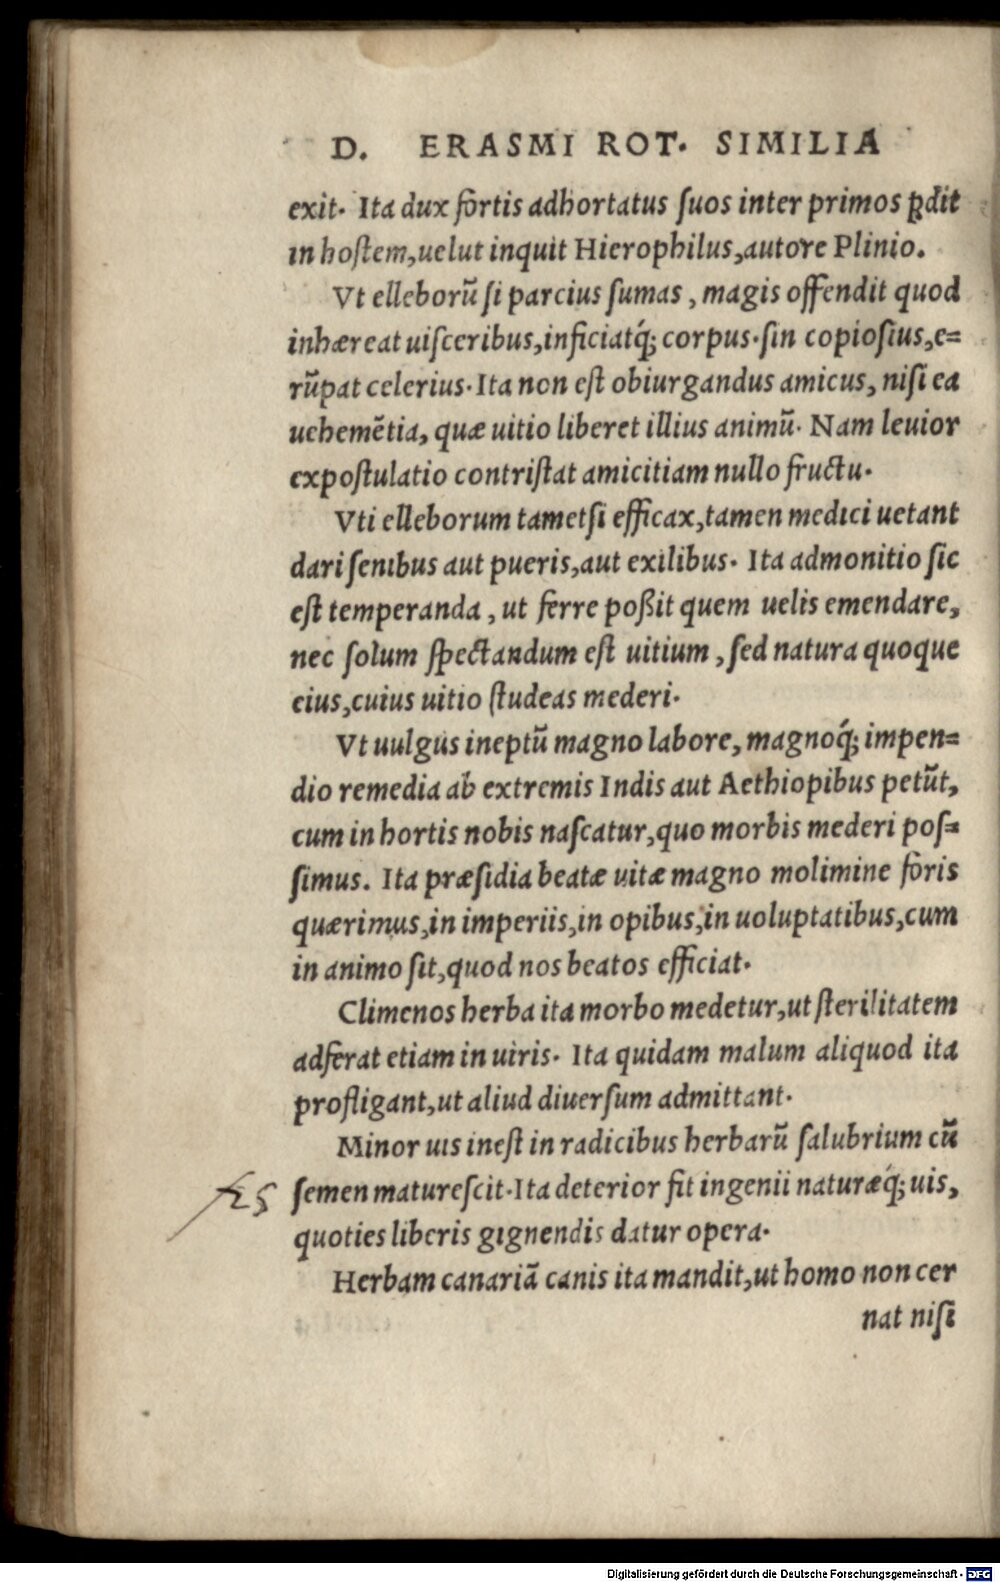 D. ERASMI ROT. SIMILIA
exit. Ita dux fortis adhortatus ſuos inter primos ꝓdit
in hoſtem,uelut inquit Hierophilus,autore Plinio.
Vt elleborũ ſi parcius ſumas, magis offendit quod
inhæreat uiſceribus,inficiatq́; corpus.ſin copioſius,e=
rũpat celerius. Ita non eſt obiurgandus amicus, niſi ea
uehemẽtia, quæ uitio liberet illius animũ. Nam leuior
expoſtulatio contriſtat amicitiam nullo fructu.
Vti elleborum tametſi efficax,tamen medici uetant
dari ſenibus aut pueris,aut exilibus. Ita admonitio ſic
eſt temperanda, ut ferre poßit quem uelis emendare,
nec ſolum ſpectandum eſt uitium, ſed natura quoque
eius,cuius uitio ſtudeas mederi.
Vt uulgus ineptũ magno labore, magnoq́; impen=
dio remedia ab extremis Indis aut Aethiopibus petũt,
cum in hortis nobis naſcatur,quo morbis mederi poſ=
ſimus. Ita præſidia beatæ uitæ magno molimine foris
quærimus,in imperiis,in opibus,in uoluptatibus,cum
in animo ſit,quod nos beatos efficiat.
Climenos herba ita morbo medetur,ut ſterilitatem
adferat etiam in uiris. Ita quidam malum aliquod ita
profligant,ut aliud diuerſum admittant.
Minor uis ineſt in radicibus herbarũ ſalubrium cũ
ſemen matureſcit.Ita deterior fit ingenii naturæq́; uis,
quoties liberis gignendis datur opera.
Herbam canariã canis ita mandit,ut homo non cer
nat niſi
Digitalisierung gefördert durch die Deutsche Forschungsgemeinschaft - DFG